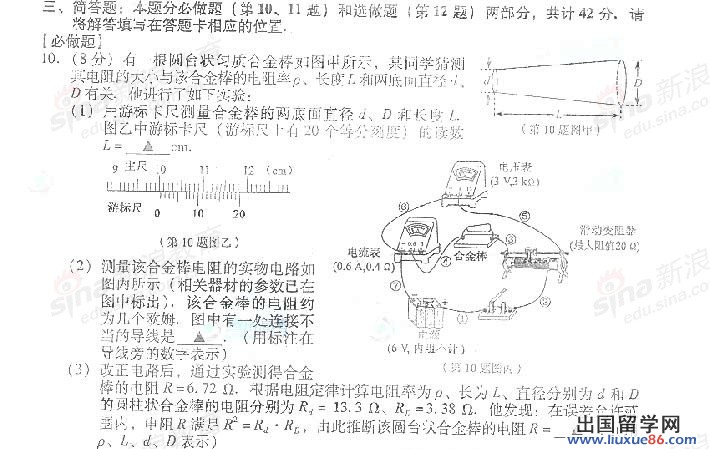 三、简答题：本题分必做题（第10、11题）和选做题（第12题）两部分，共计42分．请
将解答填写在答题卡相应的位置．
［必做题］
10．（8分）有一根圆台状匀质合金棒如图甲所示，某同学猜测
其电阻的大小与该合金棒的电阻率ρ、长度L和两底面直径d、
D有关．他进行了如下实验：
（1）用游标卡尺测量合金棒的两底面直径d、D和长度L．
图乙中游标卡尺（游标尺上有20个等分刻度）的读数
L=　▲　cm．
d
D
L
（第10题图甲）
9 主尺 10 11 12 (cm)
游标尺 0 10 20
（第10题图乙）
电压表
(3 V,3 kΩ)
电流表
(0.6 A,0.4 Ω)
合金棒
滑动变阻器
(最大阻值20 Ω)
⑥
⑤
③
①
电源
(6 V, 内阻不计)
（第10题图丙）
（2）测量该合金棒电阻的实物电路如
图丙所示（相关器材的参数已在
图中标出）．该合金棒的电阻约
为几个欧姆．图中有一处连接不
当的导线是　▲　．（用标注在
导线旁的数字表示）
（3）改正电路后，通过实验测得合金
棒的电阻R=6.72 Ω．根据电阻定律计算电阻率为ρ、长为L、直径分别为d和D
的圆柱状合金棒的电阻分别为Rd= 13.3 Ω、RD=3.38 Ω．他发现：在误差允许范
围内，电阻R满足R²=Rd·RD，由此推断该圆台状合金棒的电阻R=
ρ、L、d、D表示）
sina 新浪
edu.sina.com.cn
出国留学网
www.liuxue86.com